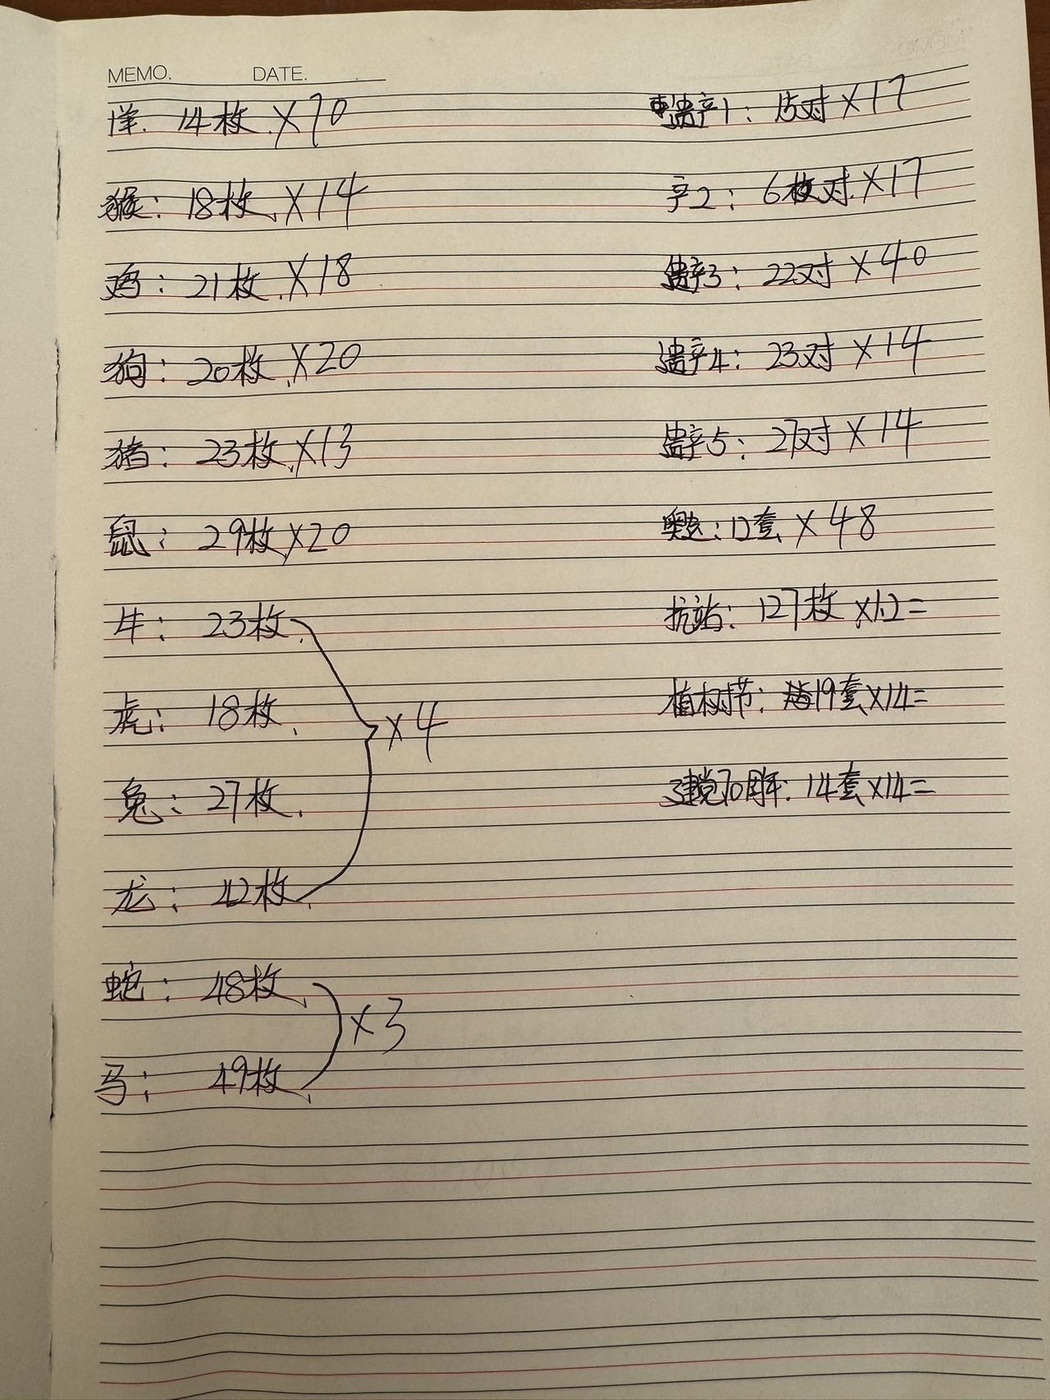 MEMO. DATE.
羊. 14枚 ×70
猴: 18枚, ×14
鸡: 21枚, ×18
狗: 20枚, ×20
猪: 23枚, ×13
鼠: 29枚, ×20
牛: 23枚.
虎: 18枚.
×4
兔: 27枚.
龙: 42枚.
蛇: 48枚.
×3
马: 49枚.
遗产1: 15对 ×17
产2: 6对 ×17
遗产3: 22对 ×40
遗产4: 23对 ×14
遗产5: 27对 ×14
奥运: 12套 ×48
抗站: 127枚 ×12=
植树节: 19套×14=
建党70周年: 14套×14=